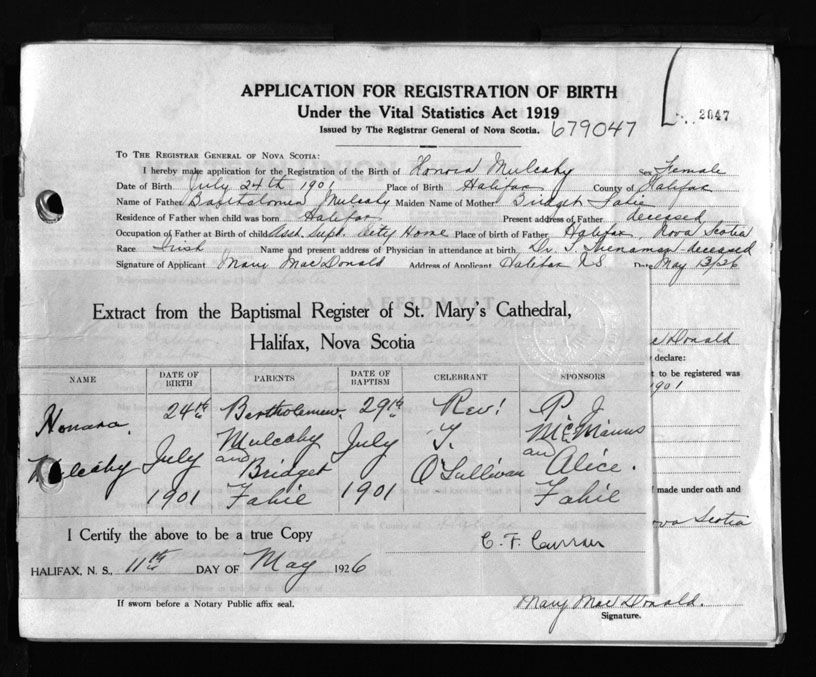 APPLICATION FOR REGISTRATION OF BIRTH
Under the Vital Statistics Act 1919
Issued by The Registrar General of Nova Scotia. 679047
2047
TO THE REGISTRAR GENERAL OF NOVA SCOTIA:
I hereby make application for the Registration of the Birth of Honora Mulcahy Sex Female
Date of Birth July 24th 1901 Place of Birth Halifax County of Halifax
Name of Father Bartholomew Mulcahy Maiden Name of Mother Bridget Fahie
Residence of Father when child was born Halifax Present address of Father deceased
Occupation of Father at Birth of child Asst. Supt. City Home Place of birth of Father Halifax, Nova Scotia
Race Irish Name and present address of Physician in attendance at birth Dr. T. deceased
Signature of Applicant Mary MacDonald Address of Applicant Halifax N.S. Date May 13/26
Extract from the Baptismal Register of St. Mary's Cathedral,
Halifax, Nova Scotia
NAME DATE OF BIRTH PARENTS DATE OF BAPTISM CELEBRANT SPONSORS
Honara 24th Bertholemew 29th Rev! P. J.
Mulcahy July T. McManus
Mulcahy July and Bridget O'Sullivan an Alice.
1901 Fahie 1901 Fahie
I Certify the above to be a true Copy
C. F. Curran
HALIFAX, N. S., 11th DAY OF May 1926
MacDonald
declare:
t to be registered was
1901
made under oath and
Nova Scotia
If sworn before a Notary Public affix seal.
Mary MacDonald.
Signature.